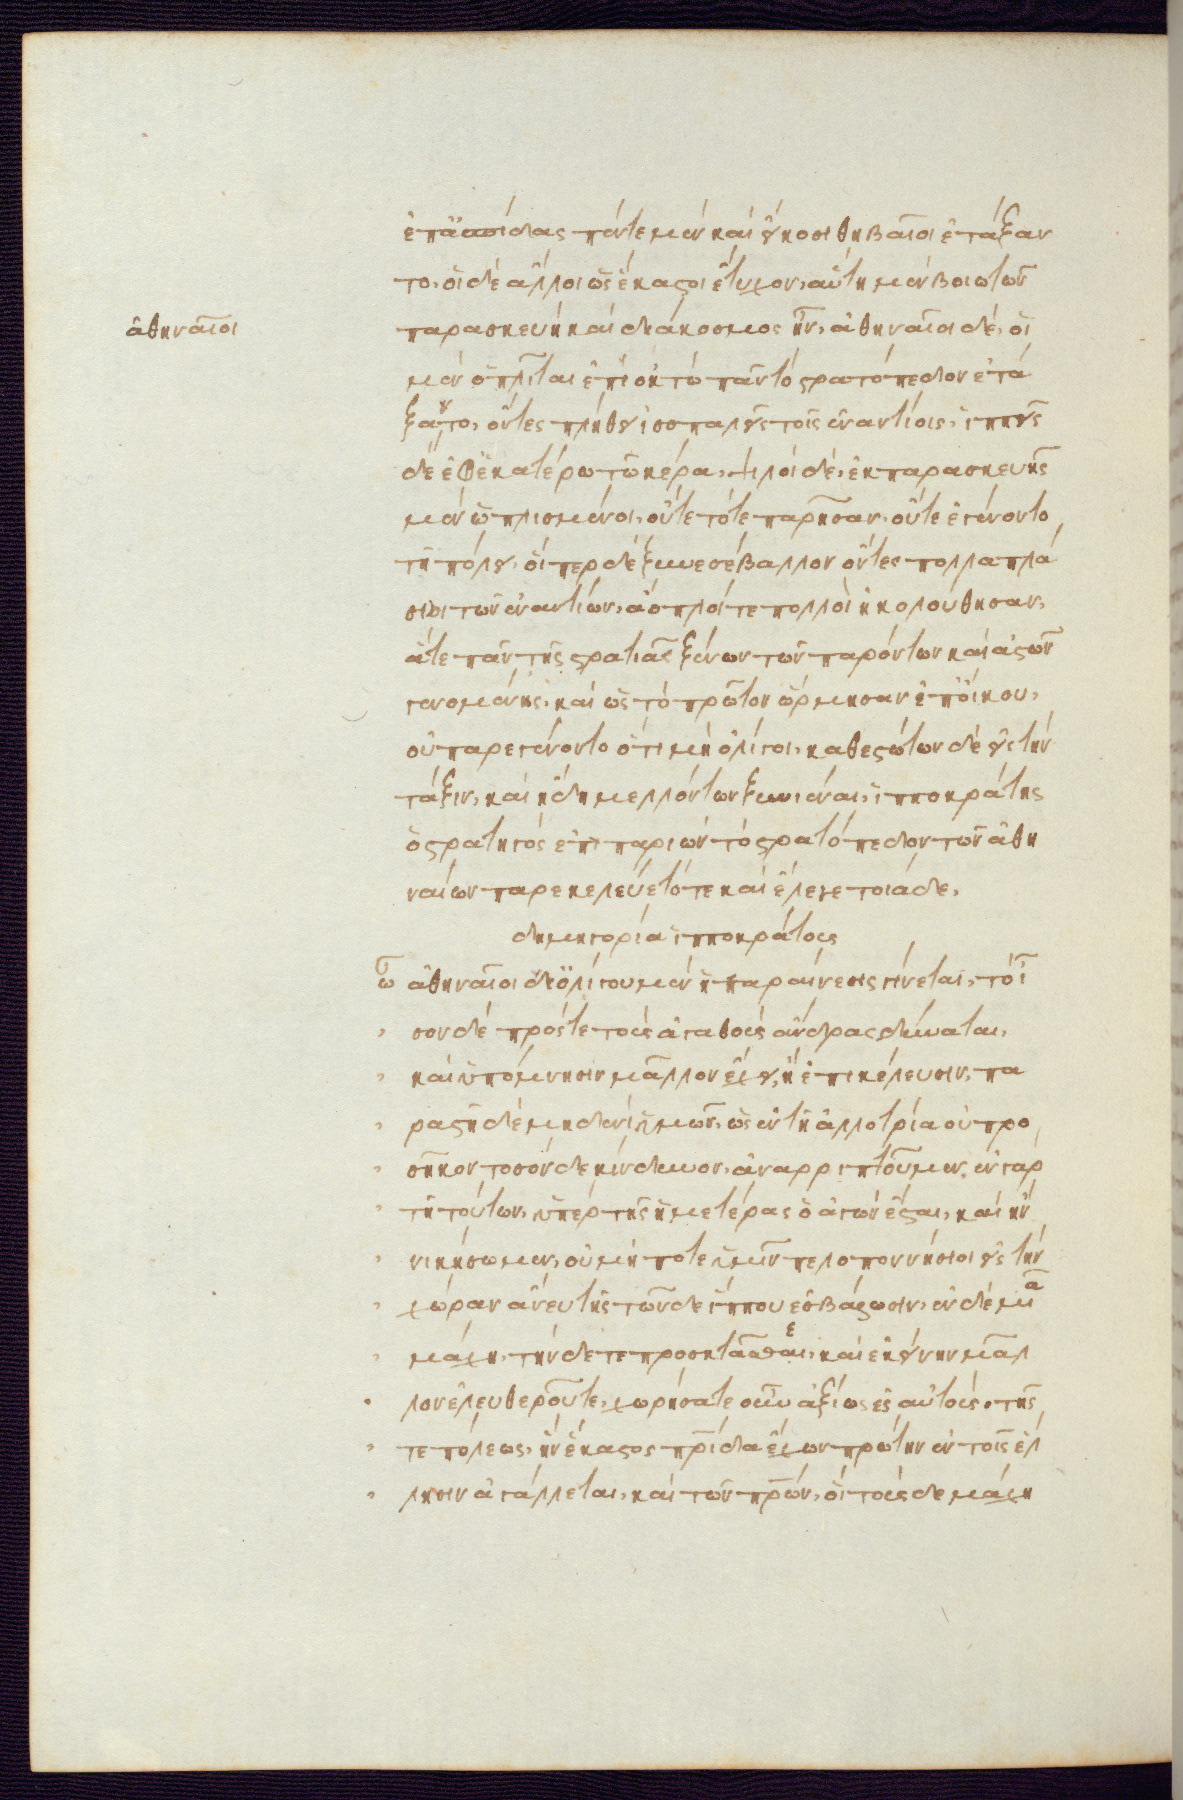 ἐπ' ἀσπίδας πέντε μὲν καὶ εἴκοσι θηβαῖοι ἐτάξαν
το, οἱ δὲ ἄλλοι ὡς ἕκαστοι ἔτυχον, αὕτη μὲν βοιωτῶν
ἀθηναῖοι
παρασκευὴ καὶ διάκοσμος ἦν, ἀθηναῖοι δὲ, οἱ
μὲν ὁπλῖται ἐπὶ ὀκτὼ πᾶν τὸ στρατόπεδον ἐτά
ξαντο, ὄντες πλήθει ἰσοπαλεῖς τοῖς ἐναντίοις, ἱππεῖς
δὲ ἐφ' ἑκατέρω τῶ κέρα, ψιλοὶ δὲ, ἐκ παρασκευῆς
μὲν ὡπλισμένοι, οὔτε τότε παρῆσαν, οὔτε ἐγένοντο
τῆ πόλει, οἵπερ δὲ ξυνεσέβαλλον ὄντες πολλαπλά
σιοι τῶν ἐναντίων, ἄοπλοί τε πολλοὶ ἠκολούθησαν,
ἅτε πανστρατιᾶς ξένων τῶν παρόντων καὶ ἀστῶν
γενομένης, καὶ ὡς τὸ πρῶτον ὥρμησαν ἐπ' οἴκου,
οὐ παρεγένοντο ὅτι μὴ ὀλίγοι, καθεστώτων δὲ εἰς τὴν
τάξιν, καὶ ἤδη μελλόντων ξυνιέναι, ἱπποκράτης
ὁ στρατηγὸς ἐπιπαριὼν τὸ στρατόπεδον τῶν ἀθη
ναίων παρεκελεύετό τε καὶ ἔλεγε τοιάδε,
δημηγορία ἱπποκράτους
ὦ ἀθηναῖοι δι' ὀλίγου μὲν ἡ παραίνεσις γίνεται, τὸ ἴ
σον δὲ πρός τε τοὺς ἀγαθοὺς ἄνδρας δύναται,
καὶ ὑπόμνησιν μᾶλλον ἔχει, ἢ ἐπικέλευσιν, πα
ραστῆ δὲ μηδενὶ ὑμῶν, ὡς ἐν τῆ ἀλλοτρία οὐ προ
σῆκον τοσόνδε κίνδυνον, ἀναρριπτοῦμεν, ἐν γὰρ
τῆ τούτων, ὑπὲρ τῆς ἡμετέρας ὁ ἀγὼν ἔσται, καὶ ἢν
νικήσωμεν, οὐ μή ποτε ὑμῖν πελοποννήσιοι εἰς τὴν
χώραν ἄνευ τῆς τῶνδε ἵππου ἐσβάλωσιν, ἐν δὲ μιᾶ
μάχη, τήνδε τε προσκτᾶσθε, καὶ ἐκείνην μᾶλ
λον ἐλευθεροῦτε, χωρήσατε οὖν ἀξίως ἐς αὐτοὺς, τῆς
τε πόλεως, ἣν ἕκαστος πρίδα ἔχων πρώτην ἐν τοῖς ἕλ
λησιν ἀγάλλεται, καὶ τῶν πρων, οἳ τούσδε μάχη